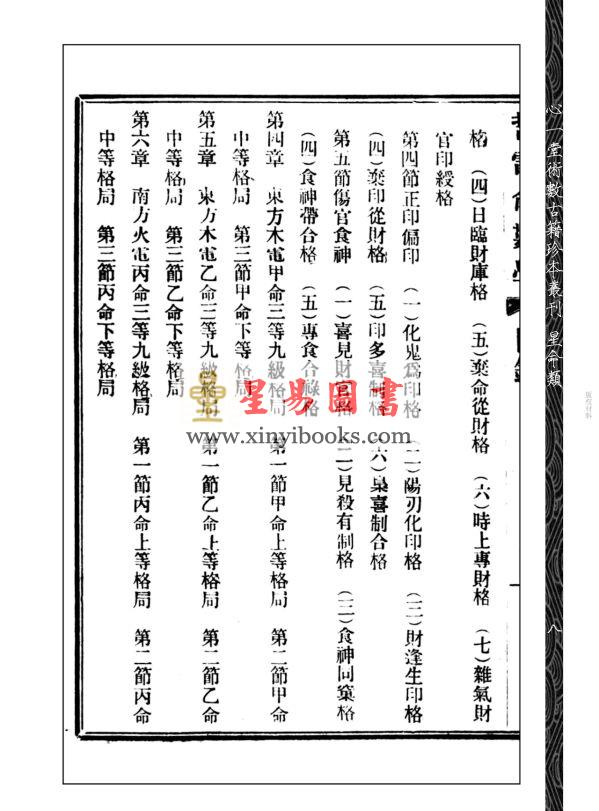 心一堂術數古籍珍本叢刊 星命類
八
格 (四)日臨財庫格 (五)棄命從財格 (六)時上專財格 (七)雜氣財
官印綬格
第四節正印偏印 (一)化鬼爲印格 (二)陽刃化印格 (三)財逢生印格
(四)棄印從財格 (五)印多喜制格 (六)梟喜制合格
第五節傷官食神 (一)喜見財官格 (二)見殺有制格 (三)食神同窠格
(四)食神帶合格 (五)專食合祿格
第四章 東方木電甲命三等九級格局 第一節甲命上等格局 第二節甲命
中等格局 第三節甲命下等格局
第五章 東方木電乙命三等九級格局 第一節乙命上等格局 第二節乙命
中等格局 第三節乙命下等格局
第六章 南方火電丙命三等九級格局 第一節丙命上等格局 第二節丙命
中等格局 第三節丙命下等格局
星易圖書
www.xinyibooks.com